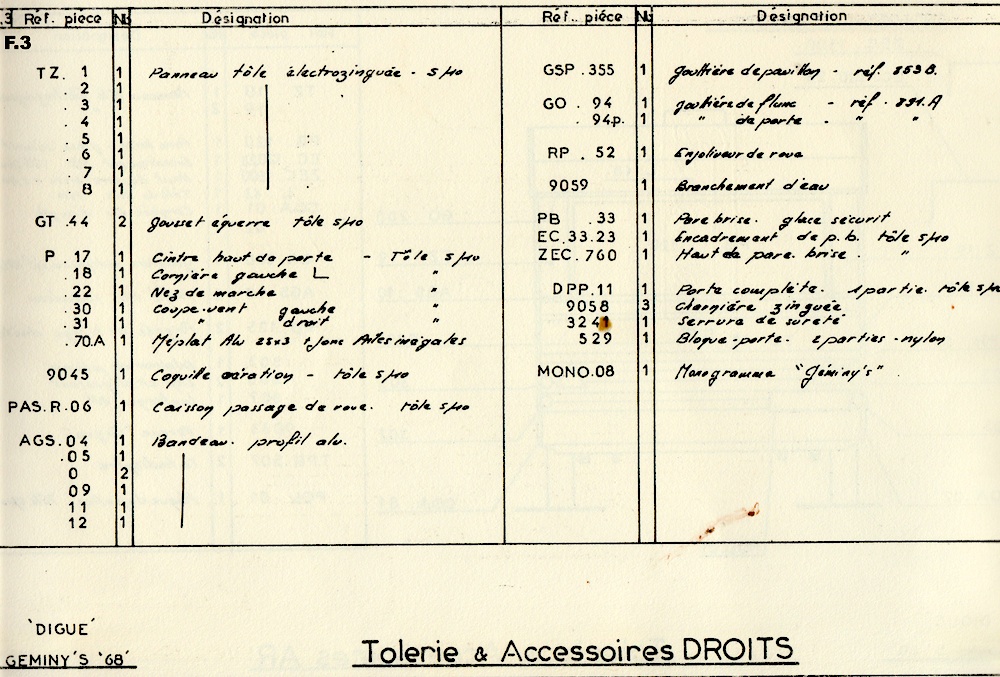 .3 Réf. pièce Nb Désignation
F.3
TZ. 1 1 Panneau tôle électrozinguée - S/40
2 1
3 1
. 4 1
5 1
6 1
7 1
8 1
GT .44 2 gousset équerre tôle S/40
P . 17 1 Cintre haut de porte - Tôle S/40
. 18 1 Cornière gauche L "
22 1 Nez de marche "
.30 1 Coupe-vent gauche "
31 1 " droit "
.70.A 1 Méplat Alu 25x3 + Jonc Ailes inégales
9045 1 Coquille aération - tôle S/40
PAS.R.06 1 Caisson passage de roue. tôle S/40
AGS.04 1 Bandeau. profil alu.
.05 1
0 2
09 1
11 1
12 1
Réf.. pièce Nb Désignation
GSP .355 1 gouttière de pavillon - réf. 853B.
GO . 94 1 goutière de flanc - réf. 891.A
. 94p. 1 " de porte - " "
RP . 52 1 Enjoliveur de roue
9059 1 Branchement d'eau
PB .33 1 Pare brise. glace sécurit
EC.33.23 1 Encadrement de p.b. tôle S/40
ZEC.760 1 Haut de pare. brise. "
DPP.11 1 Porte complète. 1 partie. tôle
9058 3 Charnière zinguée
324 1 Serrure de sureté
529 1 Bloque-porte. 2 parties - nylon
MONO.08 1 Monogramme "Géminy's" .
'DIGUE'
GEMINY'S '68'
Tolerie & Accessoires DROITS